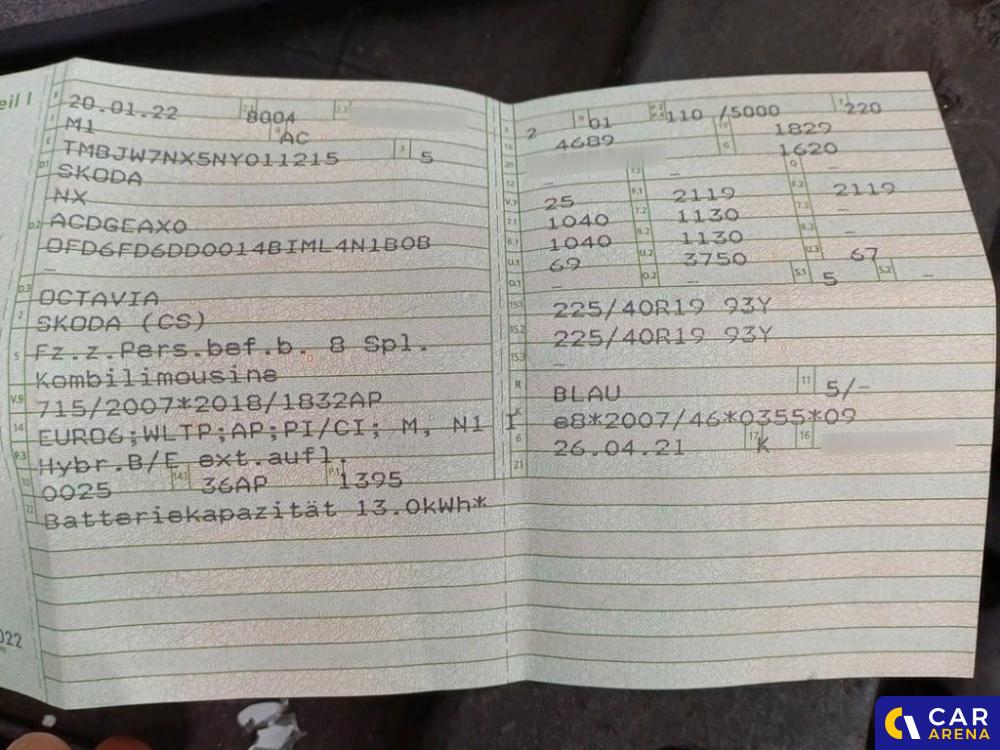 eil I
B 20.01.22 2.1 8004 2.2
J M1 4 AC
E TMBJW7NX5NY011215 3 5
D.1 SKODA
NX
D.2 ACDGEAX0
0FD6FD6DD0014BIML4N1B0B
–
D.3 OCTAVIA
2 SKODA (CS)
5 Fz.z.Pers.bef.b. 8 Spl.
Kombilimousine
V.9 715/2007*2018/1832AP
14 EURO6;WLTP;AP;PI/CI; M, N1 I
P.3 Hybr.B/E ext.aufl.
10 0025 14.1 36AP P.1 1395
22 Batteriekapazität 13.0kWh*
L 2 9 01 P.2 P.4 110 /5000 T 220
18 4689 19 1829
20 G 1620
12 – 13 – Q –
V.7 25 F.1 2119 F.2 2119
7.1 1040 7.2 1130 7.3 –
8.1 1040 8.2 1130 8.3 –
U.1 69 U.2 3750 U.3 67
O.1 – O.2 – S.1 5 S.2 –
15.1 225/40R19 93Y
15.2 225/40R19 93Y
15.3 –
R BLAU 11 5/–
K e8*2007/46*0355*09
6 26.04.21 17 K 16
21
022
CAR
ARENA